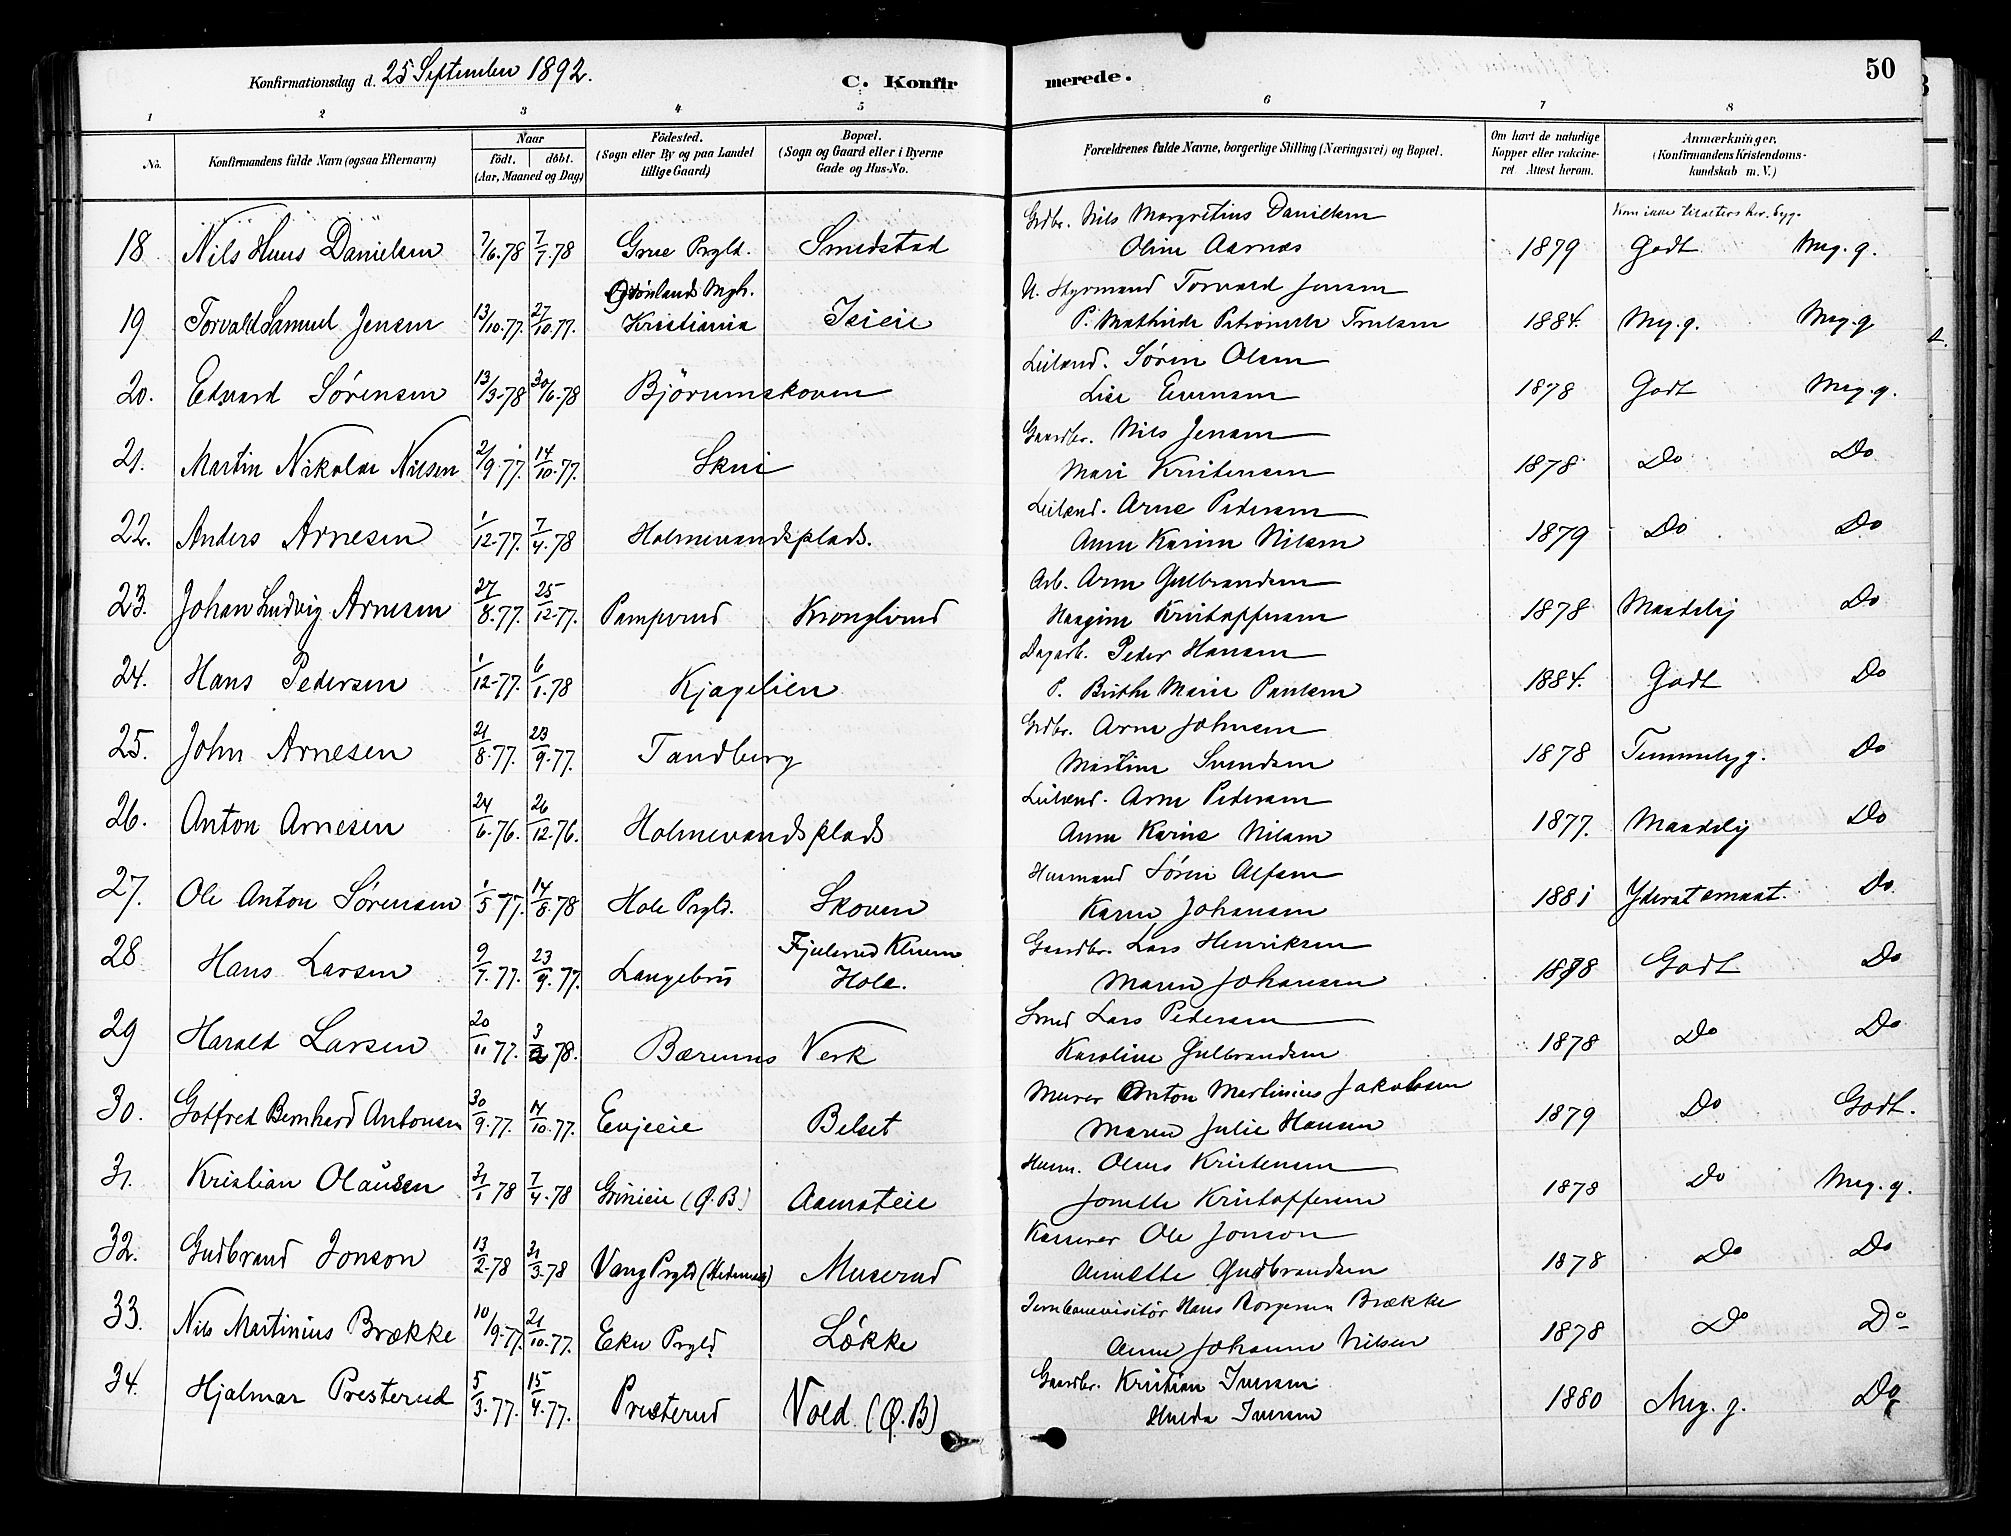 Konfirmationsdag d. 25 September 1892.
C. Konfirmerede.
50
1 2 3 4 5 6 7 8
No. Konfirmandens fulde Navn (ogsaa Efternavn) Naar födt. döbt. (Aar, Maaned og Dag) Födested. (Sogn eller By og paa Landet tillige Gaard) Bopæl. (Sogn og Gaard eller i Byerne Gade og Hus-No. Forældrenes fulde Navne, borgerlige Stilling (Næringsvei) og Bopæl. Om havt de naturlige Kopper eller vakcineret Attest herom. Anmærkninger. (Konfirmandens Kristendomskundskab m. V.)
Grdbr. Nils Margretius Danielsen
18 Nils Huus Danielsen 7/6.78 7/7.78 Grue Prgld. Smedstad Oline Aarnæs 1879 Godt Meg. g.
Grönlands Mgh. U. Styrmand Torvald Jensen
19 Torvald Samuel Jensen 13/10.77. 27/10.77. Kristiania Iseie P. Mathilde Petronelle Trulsen 1884. Meg. g. Meg. g
Leilænd. Sören Olsen
20. Edvard Sørensen 13/3-78 30/6.78 Björumskoven Lise Evensen 1878 Godt Meg. g.
Gaardbr. Nils Jensen
21. Martin Nikolai Nilsen 2/9.77. 14/10.77. Skui Mari Kristensen 1878 Do Do
Leilænd. Arne Pedersen
22. Anders Arnesen 1/12-77. 7/4.78 Holmevandsplads. Anne Karine Nilsen 1879 Do Do
Arb. Arne Gulbrandsen
23. Johan Ludvig Arnesen 27/8.77. 25/12.77. Pamperud Kronglerud Haagine Kristoffersen 1878 Maadelig Do
Dagarb. Peder Hansen
24. Hans Pedersen 1/12-77. 6/1.78 Kjaglien P. Birthe Marie Paulsen 1884. Godt Do
Grdbr. Arne Johnsen
25. John Arnesen 21/8.77. 23/9.77. Tandberg Martine Svendsen 1878 Temmelig g. Do
Leilænd. Arne Pedersen
26. Anton Arnesen 24/6.76. 26/12.76. Holmevandsplads Anne Karine Nilsen 1877. Maadelig Do
Husmand Sören Alfsen
27. Ole Anton Sørensen 1/5 77. 14/8.78 Hole Prgld. Skoven Karen Johansen 1881 Yderst smaat. Do.
Gaardbr. Lars Henriksen
28 Hans Larsen 9/7.77. 23/9.77. Langebru Hole. Maren Johansen 1878 Godt Do
Smed Lars Pedersen
29 Harald Larsen 20/11 77. 3/2 78. Bærums Verk Karoline Gulbrandsen 1878 Do Do
Murer Anton Martinius Jakobsen
30. Gotfred Bernhard Antonsen 30/9.77. 14/10.77. Evjeeie Belset Maren Julie Hansen 1879 Do Godt.
Husm. Olaus Kristensen
31. Kristian Olausen 31/1 78 7/4.78 Grinieie (Ø.B) Aamoteie Jonette Kristoffersen 1878 Do Meg. g.
Kasserer Ole Jonson
32. Gudbrand Jonson 13/2.78 31/3.78 Vang Prgld (Hedemark) Muserud Annette Gudbrandsen 1878 Do Do
Jernbanevisitør Hans Borgersen Brække
33. Nils Martinius Brække 10/9.77. 21/10.77. Eker Prgld Løkke Anne Johanne Nilsen 1878 Do Do
Gaardbr. Kristian Iversen
34. Hjalmar Presterud 5/3.77. 15/4.77. Presterud Vold. (Ø.B) Hulda Iversen 1880 Meg. g. Do